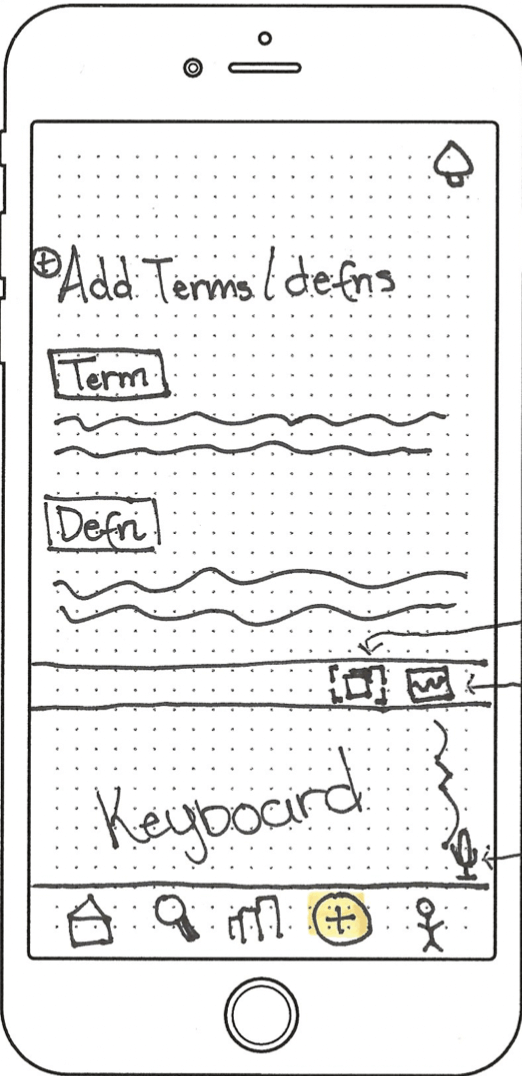 Add Terms/defns
Term
Defn
Keyboard